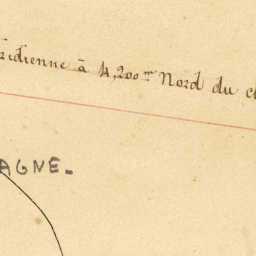 ridienne à 4,200m Nord du
AGNE.